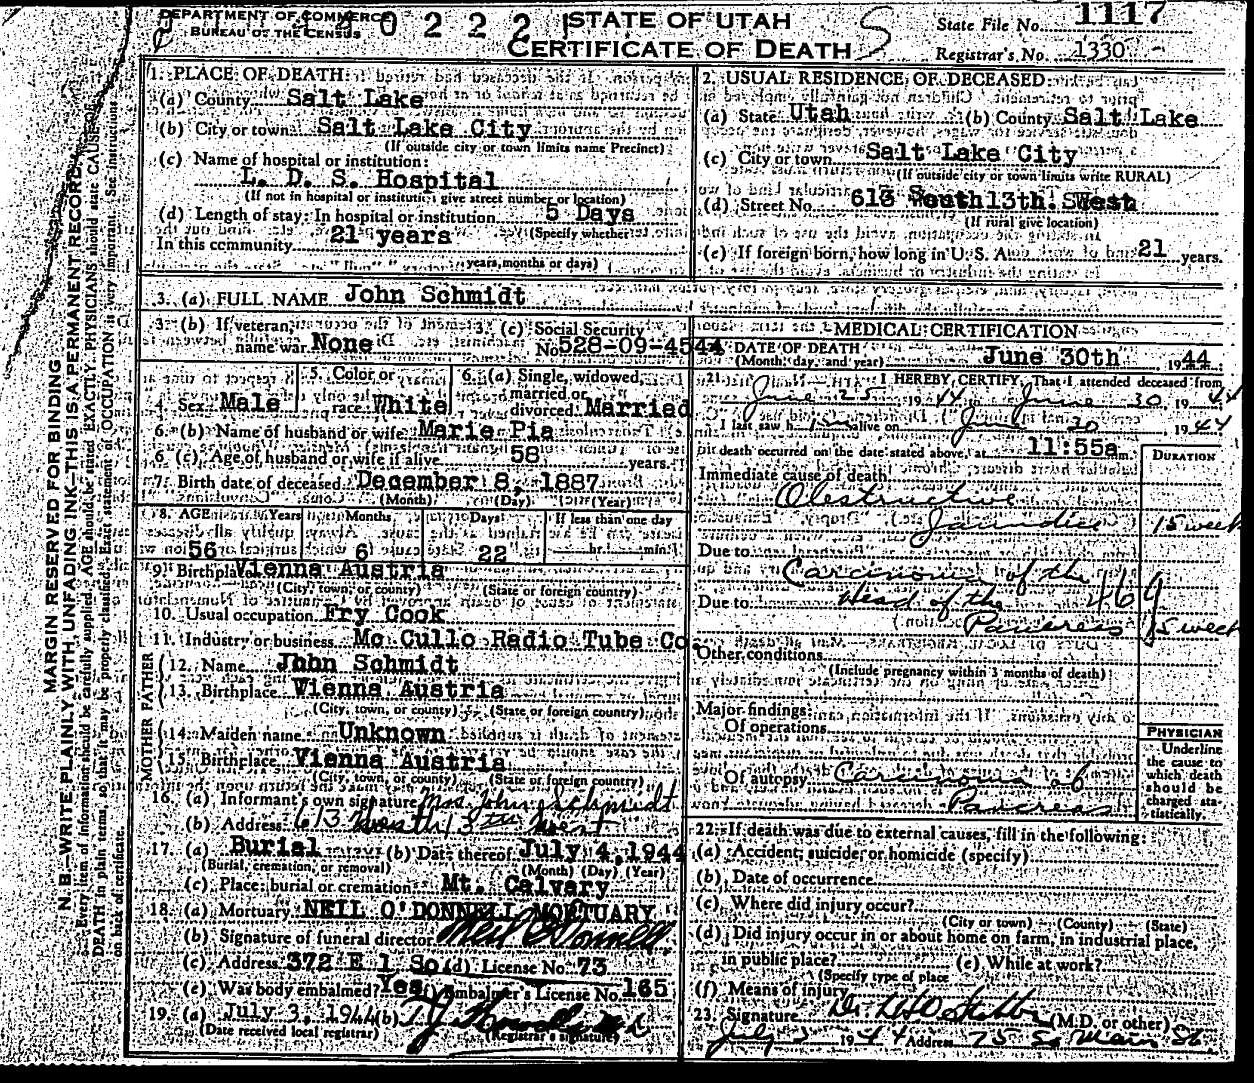 DEPARTMENT OF COMMERCE
BUREAU OF THE CENSUS
0 2 2 2 1
STATE OF UTAH
CERTIFICATE OF DEATH
S
State File No. 1117
Registrar's No. 1330
MARGIN RESERVED FOR BINDING
N. B.—WRITE PLAINLY, WITH UNFADING INK—THIS IS A PERMANENT RECORD
Every item of information should be carefully supplied. AGE should be stated EXACTLY. PHYSICIANS should state CAUSE OF
DEATH in plain terms, so that it may be properly classified. Exact statement of OCCUPATION is very important. See instructions
on back of certificate.
1. PLACE OF DEATH:
(a) County Salt Lake
(b) City or town Salt Lake City
(If outside city or town limits name Precinct)
(c) Name of hospital or institution:
L. D. S. Hospital
(If not in hospital or institution give street number or location)
(d) Length of stay: In hospital or institution 5 Days
(Specify whether
In this community 21 years
years, months or days)
2. USUAL RESIDENCE OF DECEASED:
(a) State Utah (b) County Salt Lake
(c) City or town Salt Lake City
(If outside city or town limits write RURAL)
(d) Street No. 613 South 13th. West
(If rural give location)
(e) If foreign born, how long in U. S. A. 21 years.
3. (a) FULL NAME John Schmidt
3. (b) If veteran, name war None
3. (c) Social Security No. 528-09-4544
4. Sex Male
5. Color or race White
6. (a) Single, widowed, married or divorced Married
6. (b) Name of husband or wife Marie Pia
6. (c) Age of husband or wife if alive 58 years.
7. Birth date of deceased December 8, 1887
(Month) (Day) (Year)
8. AGE Years Months Days If less than one day
56 6 22 hr. min.
9. Birthplace Vienna Austria
(City, town, or county) (State or foreign country)
10. Usual occupation Fry Cook
11. Industry or business Mc Cullo Radio Tube Co.
FATHER
12. Name John Schmidt
13. Birthplace Vienna Austria
(City, town, or county) (State or foreign country)
MOTHER
14. Maiden name Unknown
15. Birthplace Vienna Austria
(City, town, or county) (State or foreign country)
16. (a) Informant's own signature Mrs. John Schmidt
(b) Address 613 South 13th West
17. (a) Burial (b) Date thereof July 4, 1944
(Burial, cremation, or removal) (Month) (Day) (Year)
(c) Place: burial or cremation Mt. Calvary
18. (a) Mortuary NEIL O'DONNELL MORTUARY
(b) Signature of funeral director Neil O'Donnell
(c) Address 372 E 1 So (d) License No. 73
(e) Was body embalmed? Yes (f) Embalmer's License No. 165
19. (a) July 3, 1944 (b)
(Date received local registrar) (Registrar's signature)
MEDICAL CERTIFICATION
20. DATE OF DEATH
(Month, day, and year) June 30th 1944
21. I HEREBY CERTIFY, That I attended deceased from
June 25 1944 to June 30 1944
I last saw him alive on June 30 1944
death occurred on the date stated above, at 11:55a m.
DURATION
Immediate cause of death
Obstructive
Jaundice 15 week
Due to
Carcinoma of the
Due to Head of the 46g
Pancreas 15 week
Other conditions
(Include pregnancy within 3 months of death)
Major findings:
Of operations
Of autopsy Carcinoma of
Pancreas
PHYSICIAN
Underline
the cause to
which death
should be
charged sta-
tistically.
22. If death was due to external causes, fill in the following:
(a) Accident, suicide, or homicide (specify)
(b) Date of occurrence
(c) Where did injury occur?
(City or town) (County) (State)
(d) Did injury occur in or about home on farm, in industrial place,
in public place? (e) While at work?
(Specify type of place
(f) Means of injury
23. Signature Dr. (M.D. or other)
July 3 1944 Address 75 So Main St.